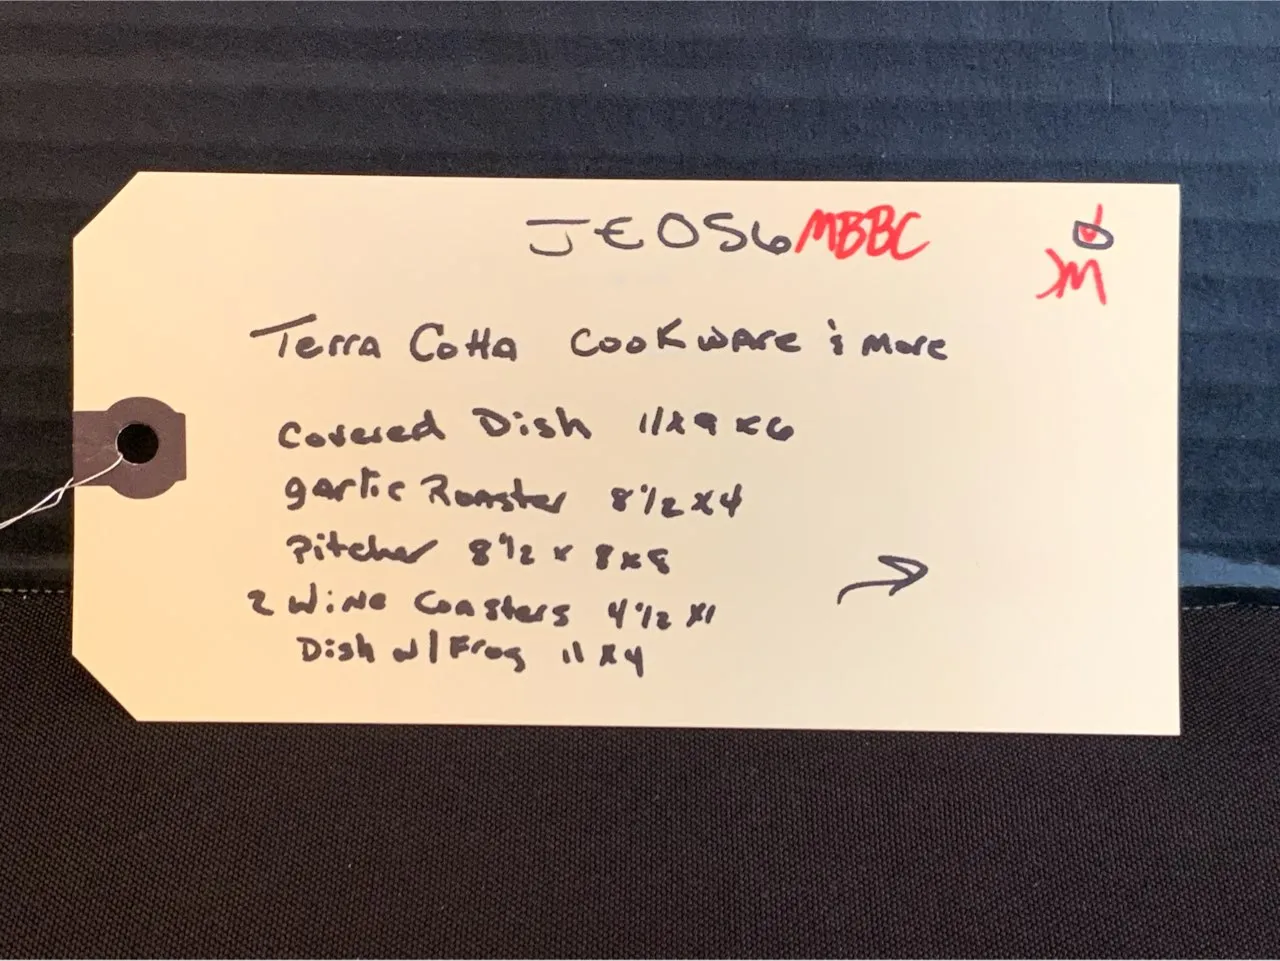 JE056 MBBC
M
Terra Cotta Cookware & More
Covered Dish 11x9x6
garlic Roaster 8 1/2 x 4
Pitcher 8 1/2 x 8x8
2 Wine Coasters 4 1/2 x1
Dish w/ Frog 11x4